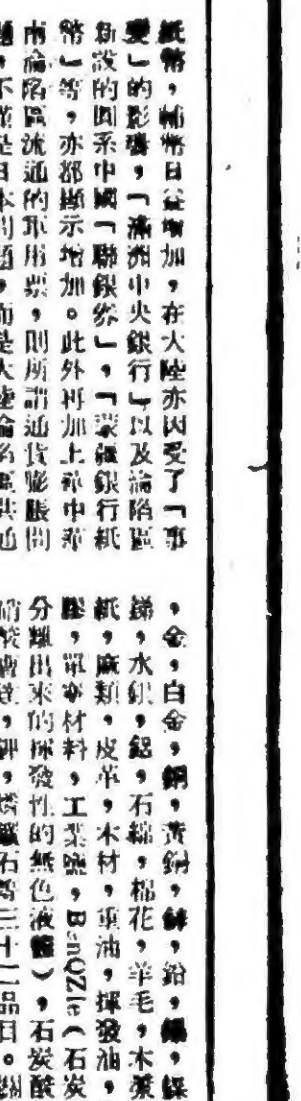 紙幣，輔幣日益增加，在大陸亦因受了「事
變」的影響，「滿洲中央銀行」以及淪陷區
新設的圓系中國「聯銀券」，「蒙疆銀行紙
幣」等，亦都顯示增加。此外再加上華中華
南淪陷區流通的軍用票，則所謂通貨膨脹問
題，不僅是日本問題，而是大陸淪陷區共通
，金，白金，銅，黃銅，鋅，鉛，錫，鎳
銻，水銀，鋁，石綿，棉花，羊毛，木漿
紙，麻類，皮革，木材，重油，揮發油，
膠，單寧材料，工業鹽，BenQZle（石炭
分離出來的揮發性的無色液體），石炭酸
硝酸曹達，鉀，燐鑛石等三十二品目。